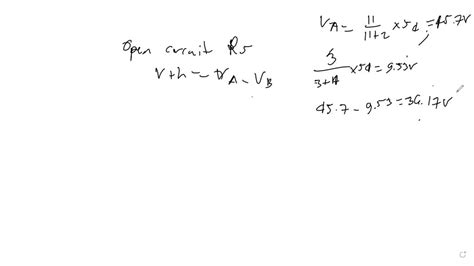 Open circuit R5
Vth = VA - VB
VA = 11/11+2 × 54 = 45.7V
3/3+14 × 54 = 9.53V
45.7 - 9.53 = 36.17V